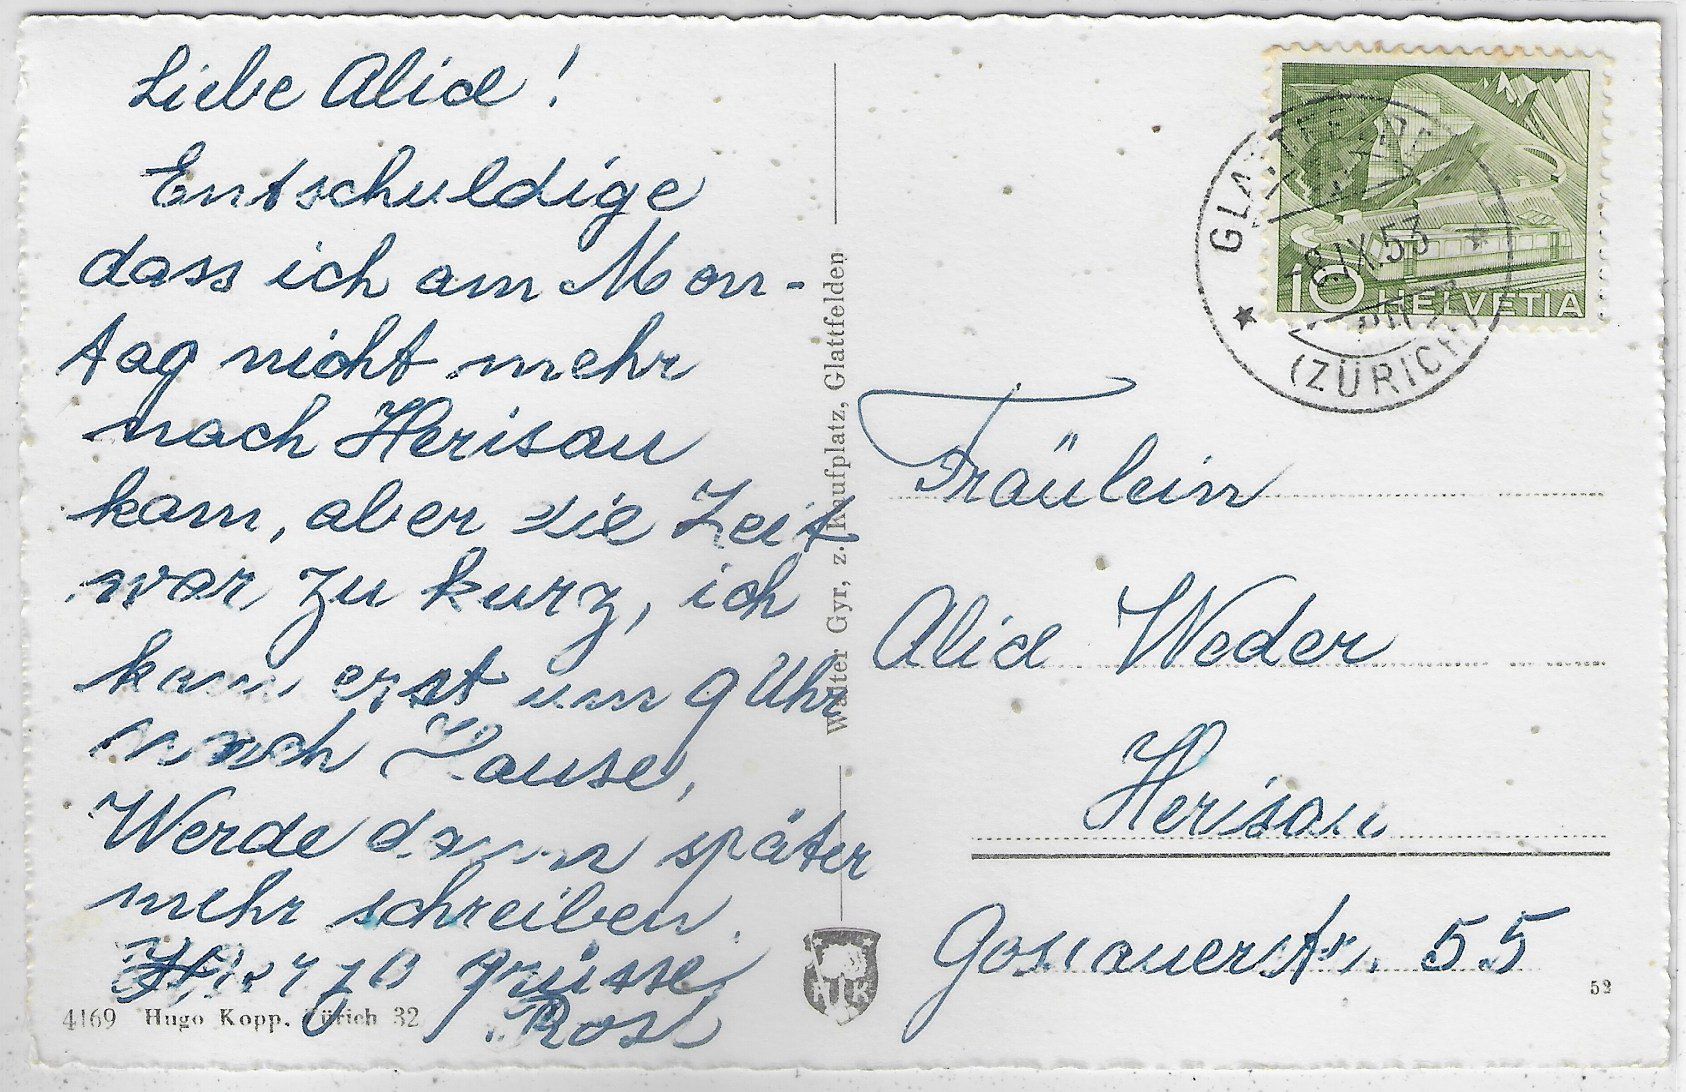 Liebe Alice!
Entschuldige
dass ich am Mon-
tag nicht mehr
nach Herisau
kam, aber die Zeit
war zu kurz, ich
kam erst um 9 Uhr
nach Hause,
Werde dann später
mehr schreiben.
Herzl grüsse
Rosl
4169 Hugo Kopp. Zürich 32
Walter Gyr, z. Kaufplatz, Glattfelden
AK
GLATTFELDEN
-8.IX.53
(ZÜRICH)
10 HELVETIA
Fräulein
Alice Weder
Herisau
Gossauerstr. 55
52